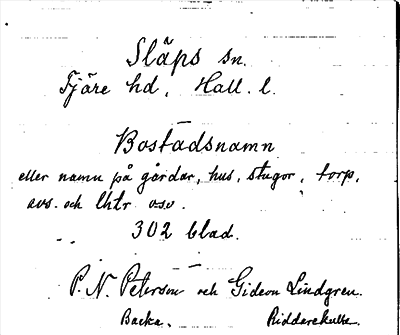 Släps sn.
Fjäre hd, Hall. l.
Bostadsnamn
eller namn på gårdar, hus, stugor, torp,
avs. och lhtr osv.
302 blad.
P. N. Peterson och Gideon Lindgren.
Backa. Riddarekulla.